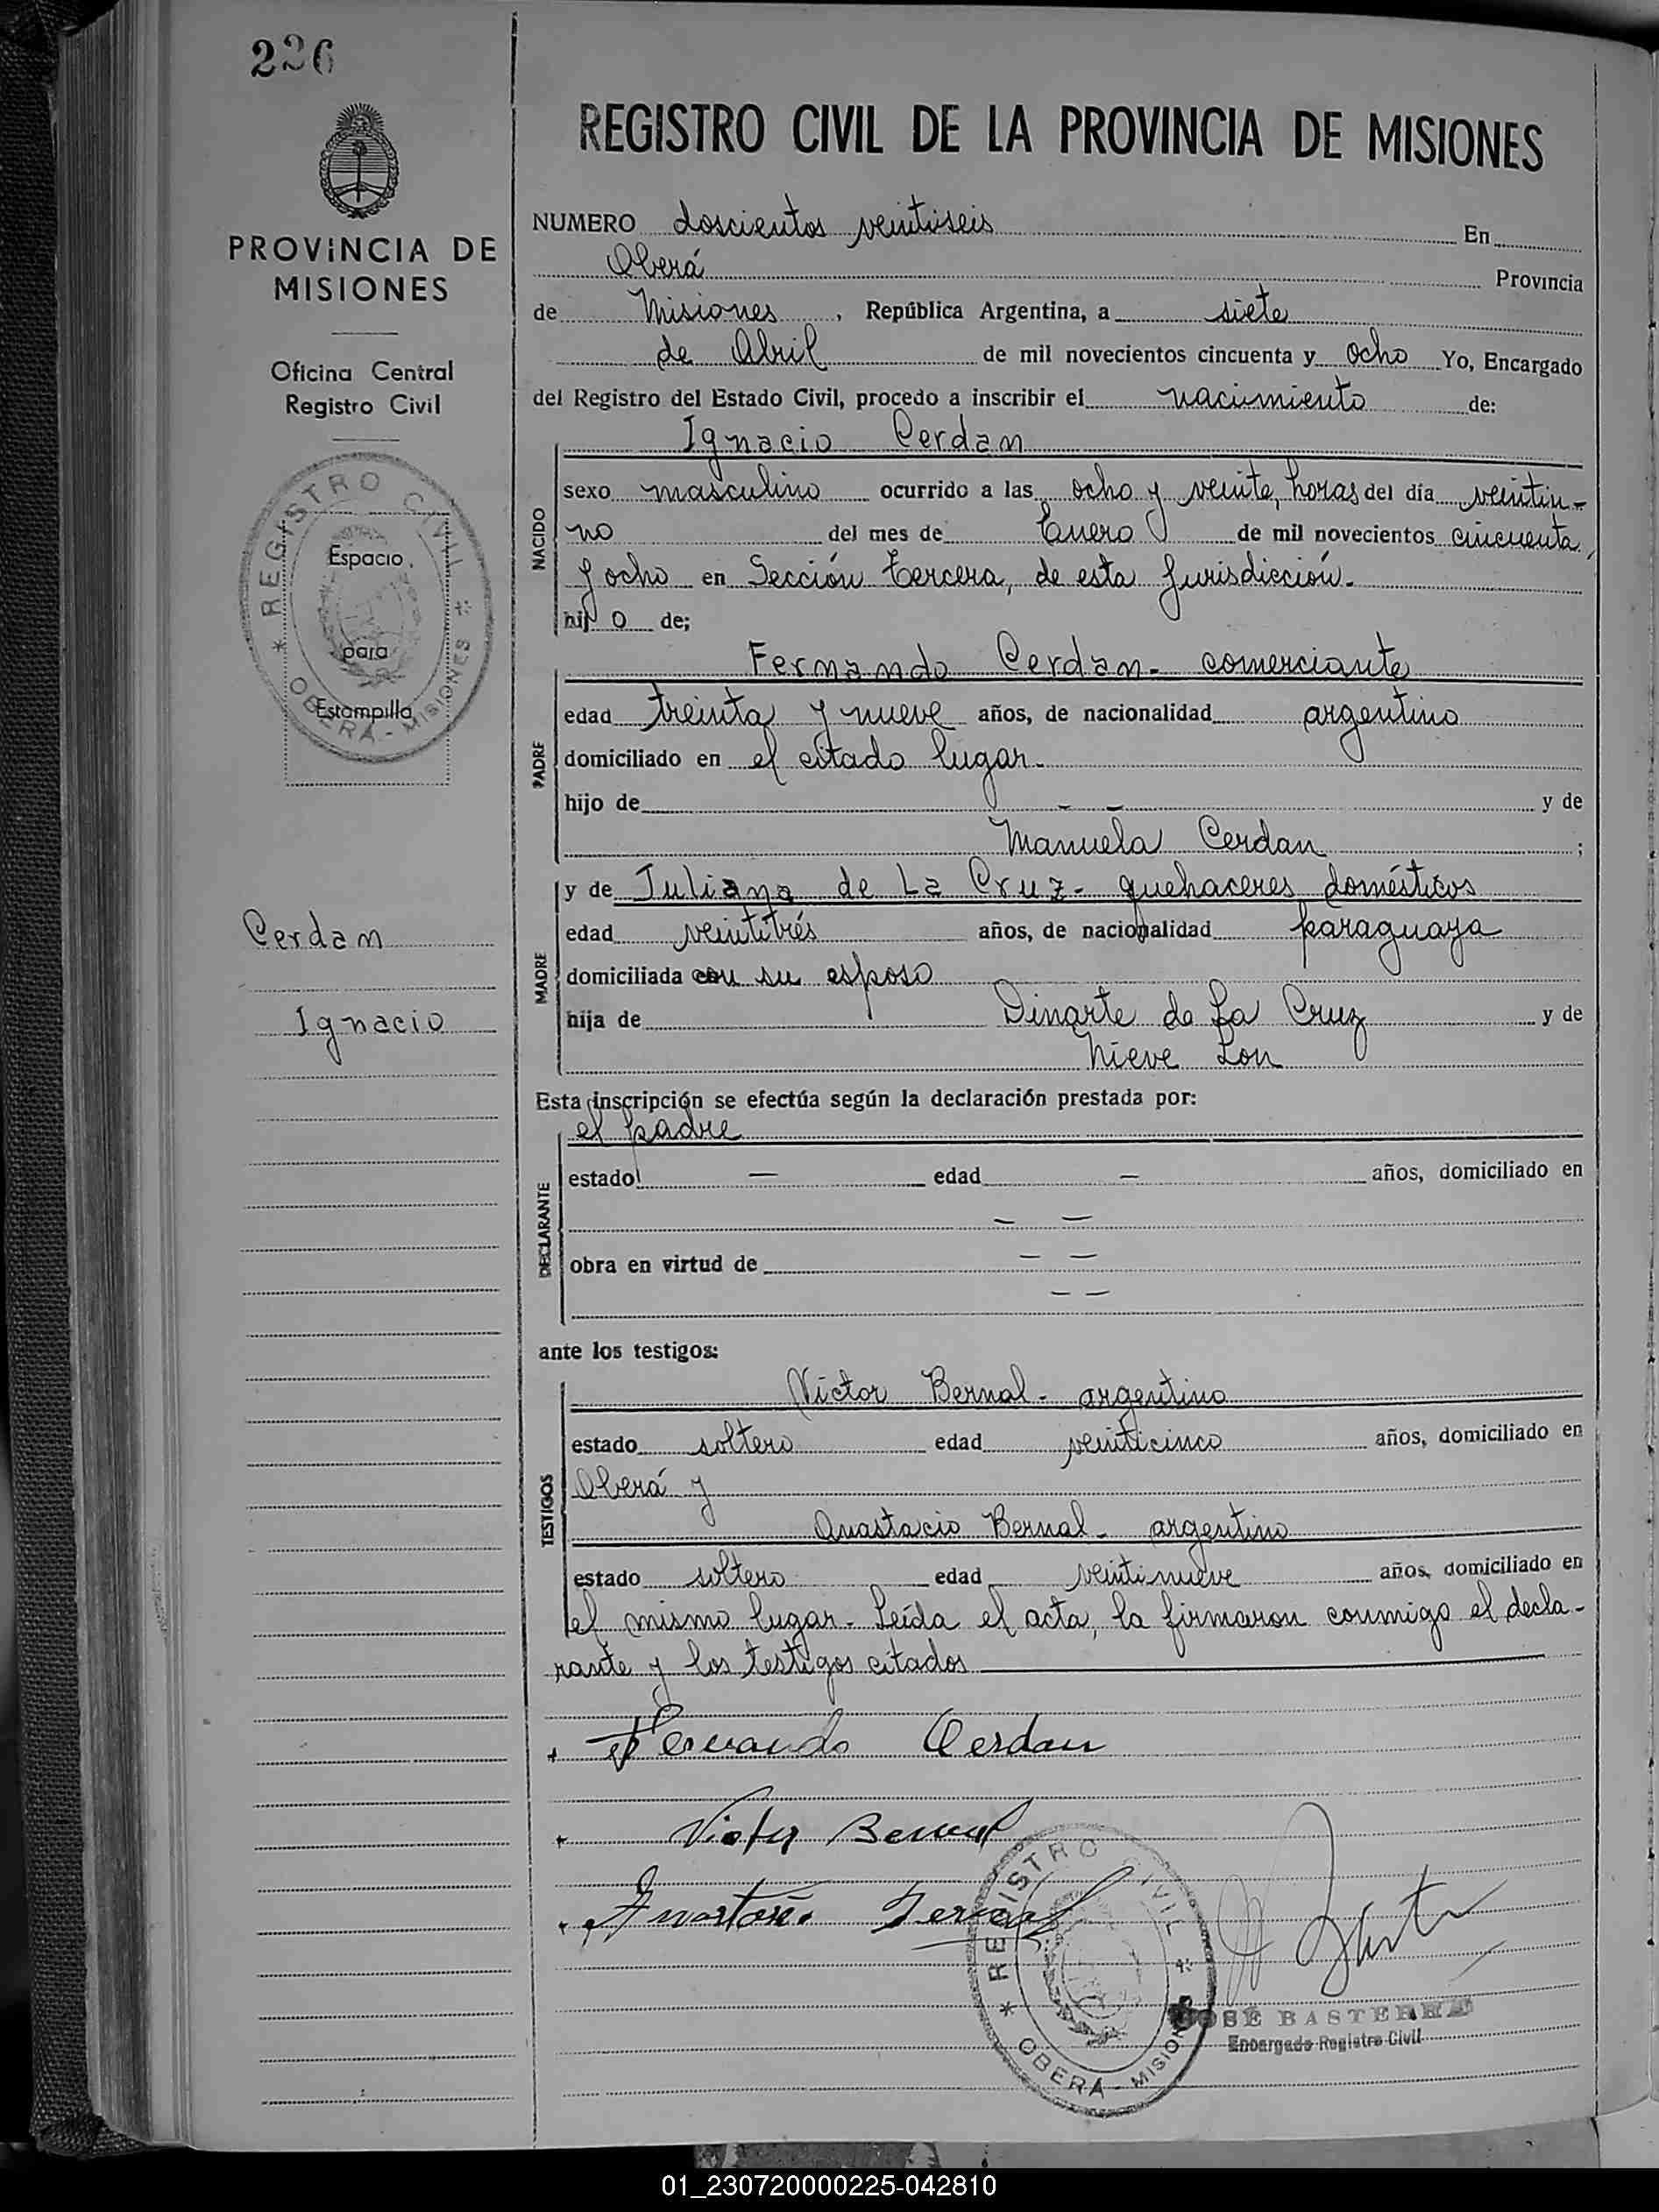 226
PROVINCIA DE
MISIONES
Oficina Central
Registro Civil
* REGISTRO CIVIL *
OBERA - MISIONES
Espacio
para
Estampilla
Cerdan
Ignacio
REGISTRO CIVIL DE LA PROVINCIA DE MISIONES
NUMERO doscientos veintiseis En
Oberá Provincia
de Misiones, República Argentina, a siete
de Abril de mil novecientos cincuenta y ocho Yo, Encargado
del Registro del Estado Civil, procedo a inscribir el nacimiento de:
NACIDO
Ignacio Cerdan
sexo masculino ocurrido a las ocho y veinte, horas del día veintiu-
no del mes de Enero de mil novecientos cincuenta
y ocho en Sección tercera, de esta Jurisdicción.
hijo de;
PADRE
Fernando Cerdan - comerciante
edad treinta y nueve años, de nacionalidad argentino
domiciliado en el citado lugar.
hijo de - - y de
Manuela Cerdan ;
MADRE
y de Juliana de La Cruz - quehaceres domésticos
edad veintitrés años, de nacionalidad paraguaya
domiciliada con su esposo
hija de Dinarte de La Cruz y de
Nieve Lon
Esta inscripción se efectúa según la declaración prestada por:
DECLARANTE
el padre
estado - edad - años, domiciliado en
- -
obra en virtud de - -
- -
ante los testigos:
TESTIGOS
Víctor Bernal - argentino
estado soltero edad veinticinco años, domiciliado en
Oberá y
Anastacio Bernal - argentino
estado soltero edad veintinueve años, domiciliado en
el mismo lugar - Leída el acta, la firmaron conmigo el decla-
rante y los testigos citados
Fernando Cerdan
Victor Bernal
Anastacio Bernal
* REGISTRO CIVIL *
OBERA - MISIONES
JOSÉ BASTERRA
Encargado Registro Civil
01_230720000225-042810